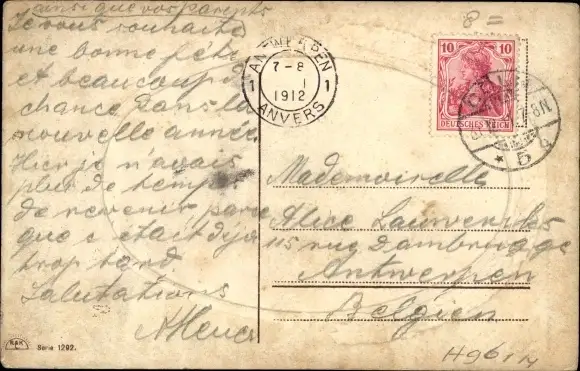 ainsi que vos parents
Je vous souhaite
une bonne fête
et beaucoup de
chance dans la
nouvelle année.
Hier je n'avais
plus de temps
de revenir parce
que c'était déjà
trop tard.
Salutations
R&K
Serie 1292.
ANTWERPEN
1 7-8 1
1
1912
ANVERS
8 =
10 10
DEUTSCHES REICH
* 5 q
Mademoiselle
Alice Lauwereks
115 rue Dambrugge
Antwerpen
Belgien